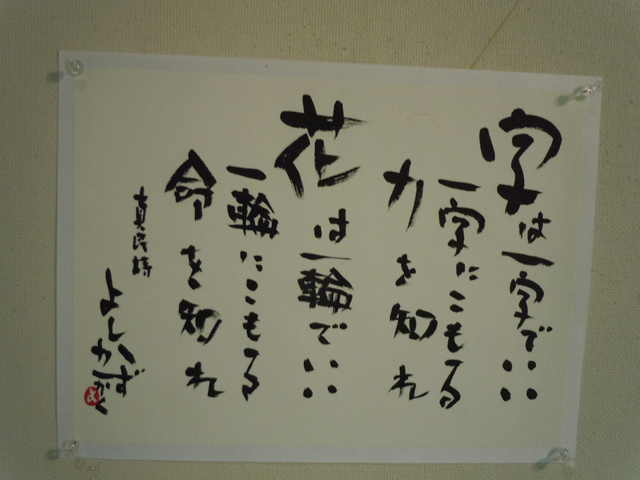 字は一字でいい
一字にこもる
力を知れ
花は一輪でいい
一輪にこもる
命を知れ
真民詩
よしかずかく